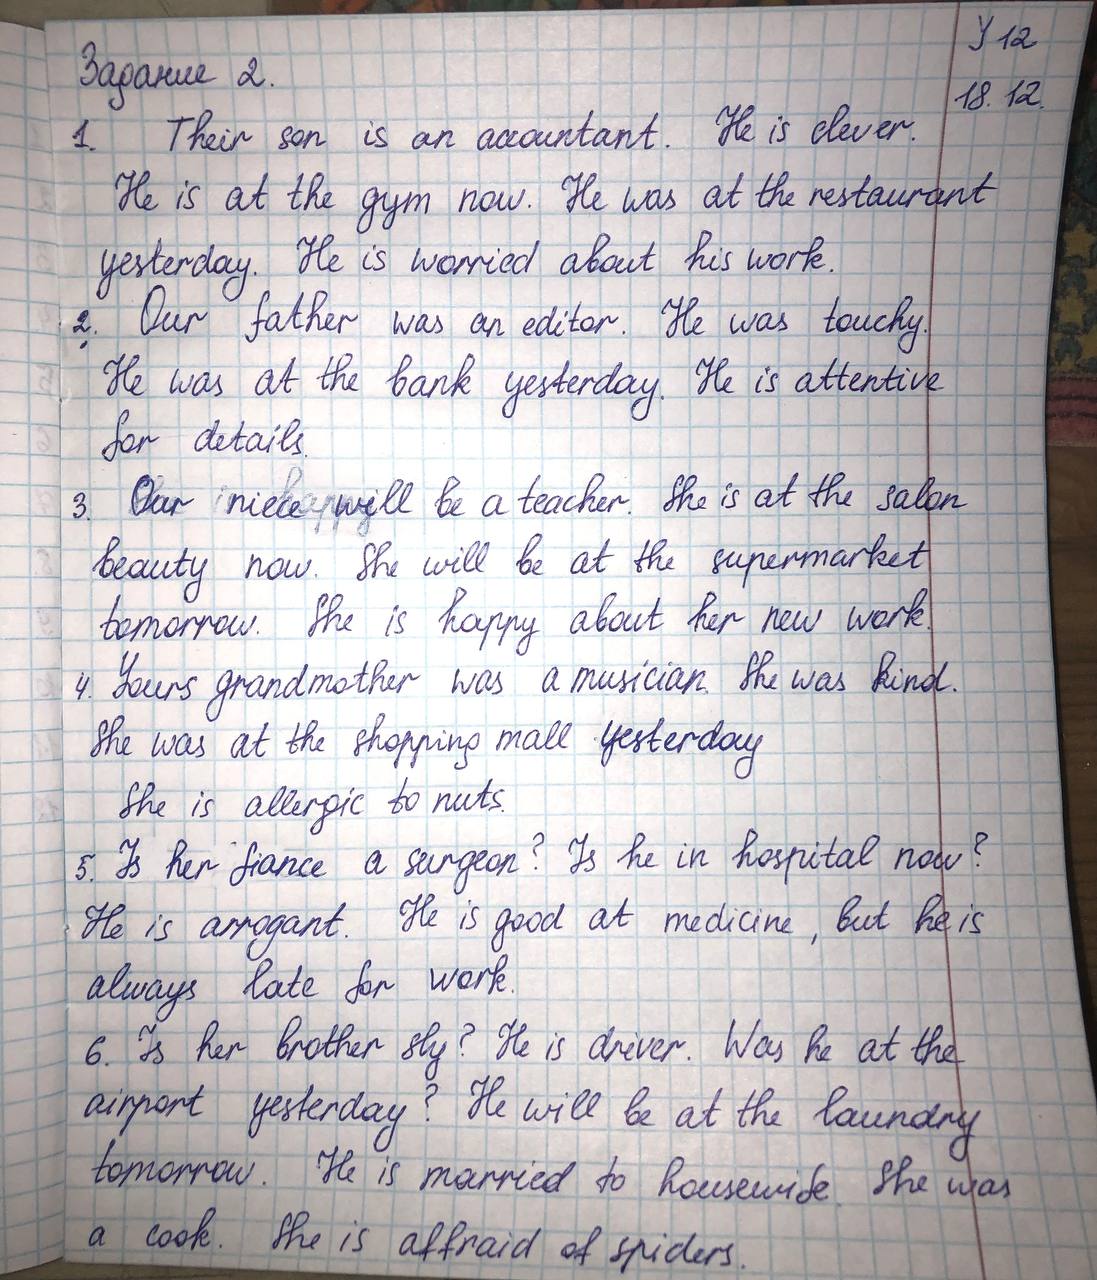 У 12
Задание 2.
18.12.
1. Their son is an accountant. He is clever.
He is at the gym now. He was at the restaurant
yesterday. He is worried about his work.
2. Our father was an editor. He was touchy.
He was at the bank yesterday. He is attentive
for details.
3. Our niece will be a teacher. She is at the salon
beauty now. She will be at the supermarket
tomorrow. She is happy about her new work.
4. Yours grandmother was a musician. She was kind.
She was at the shopping mall yesterday
She is allergic to nuts.
5. Is her fiance a surgeon? Is he in hospital now?
He is arrogant. He is good at medicine, but he is
always late for work.
6. Is her brother sly? He is driver. Was he at the
airport yesterday? He will be at the laundry
tomorrow. He is married to housewife. She was
a cook. She is affraid of spiders.